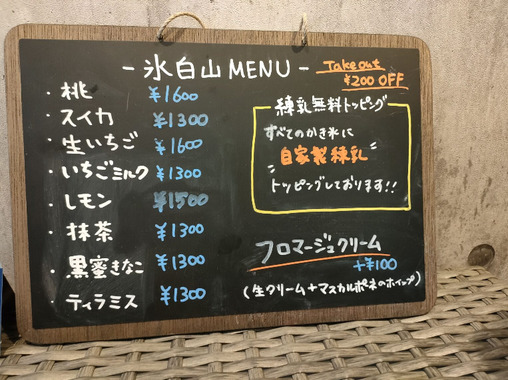 -氷白山MENU-
Takeout
¥200 OFF
・桃 ¥1600
・スイカ ¥1300
・生いちご ¥1600
・いちごミルク ¥1300
・レモン ¥1500
・抹茶 ¥1300
・黒蜜きなこ ¥1300
・ティラミス ¥1300
練乳無料トッピング
すべてのかき氷に
"自家製練乳"
トッピングしております!!
フロマージュクリーム
+¥100
(生クリーム+マスカルポネのホイップ)